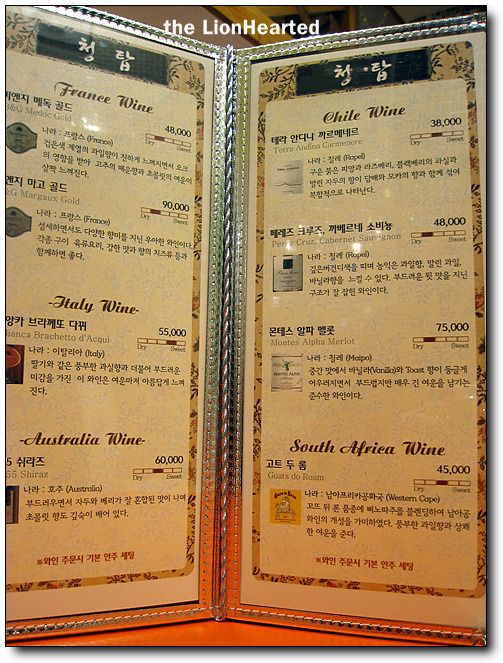 the LionHearted
청 탑
France Wine
메독 골드
Medoc Gold
48,000
Dry Sweet
나라 : 프랑스 (France)
검은색 계열의 과일향이 진하게 느껴지면서 오크
의 영향을 받아 고추의 매운향과 초콜릿의 여운이
살짝 느껴진다.
마고 골드
Margaux Gold
90,000
Dry Sweet
나라 : 프랑스 (France)
섬세하면서도 다양한 향미를 지닌 우아한 와인이다.
각종 구이 육류요리, 강한 맛과 향의 치즈류 등과
함께하면 좋다.
-Italy Wine-
브라께또 다뀌
Brachetto d'Acqui
55,000
Dry Sweet
나라 : 이탈리아 (Italy)
딸기와 같은 풍부한 과실향과 더불어 부드러운
미감을 가진 이 와인은 여운까지 아름답게 느껴
진다.
-Australia Wine-
쉬라즈
Shiraz
60,000
Dry Sweet
나라 : 호주 (Australia)
부드러우면서 자두와 베리가 잘 혼합된 맛이 나며
초콜릿 향도 깊숙이 배어 있다.
※와인 주문시 기본 안주 세팅
청 탑
Chile Wine
테라 안디나 까르메네르
Terra Andina Carmenere
38,000
Dry Sweet
나라 : 칠레 (Rapel)
구운 붉은 피망과 라즈베리, 블랙베리의 과실과
말린 자두의 향이 담배와 모카의 향과 함께 섞여
복합적으로 나타난다.
페레즈 크루즈, 까베르네 소비뇽
Perez Cruz, Cabernet Sauvignon
48,000
Dry Sweet
나라 : 칠레 (Rapel)
깊은버건디색을 띠며 농익은 과일향, 말린 과일,
바닐라향을 느낄 수 있다. 부드러운 뒷 맛을 지닌
구조가 잘 잡힌 와인이다.
몬테스 알파 멜롯
Montes Alpha Merlot
75,000
Dry Sweet
나라 : 칠레 (Maipo)
중간 맛에서 바닐라(Vanilla)와 Toast 향이 둥글게
어우러지면서 부드럽지만 매우 긴 여운을 남기는
준수한 와인이다.
South Africa Wine
고트 두 롬
Goats do Roam
45,000
Dry Sweet
나라 : 남아프리카공화국 (Western Cape)
꼬뜨 뒤 론 품종에 삐노따쥬를 블렌딩하여 남아공
와인의 개성을 가미하였다. 풍부한 과일향과 상쾌
한 여운을 준다.
※와인 주문시 기본 안주 세팅